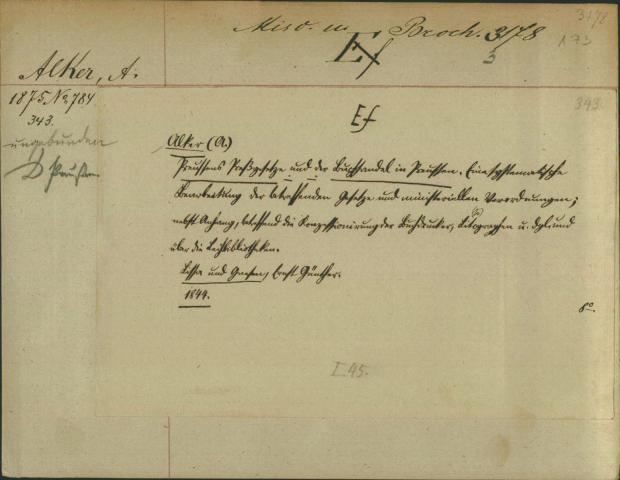 3178
Misc. u. Broch. 3178
173
Ef
3
Alker, A.
1875. No. 784
343.
ungebunden
D Preußen
343.
Ef
Alker (A.)
Preussens Preßgesetze und der Buchhandel in Preussen. Eine systematische
Bearbeitung der betreffenden Gesetze und ministeriellen Verordnungen;
nebst Anhang, betreffend die Konzessionirung der Buchdrucker, Litographen u. dgl. und
über die Leihbibliotheken.
Lissa und Gnesen, Ernst Günther.
1844.
8o.
I.45.